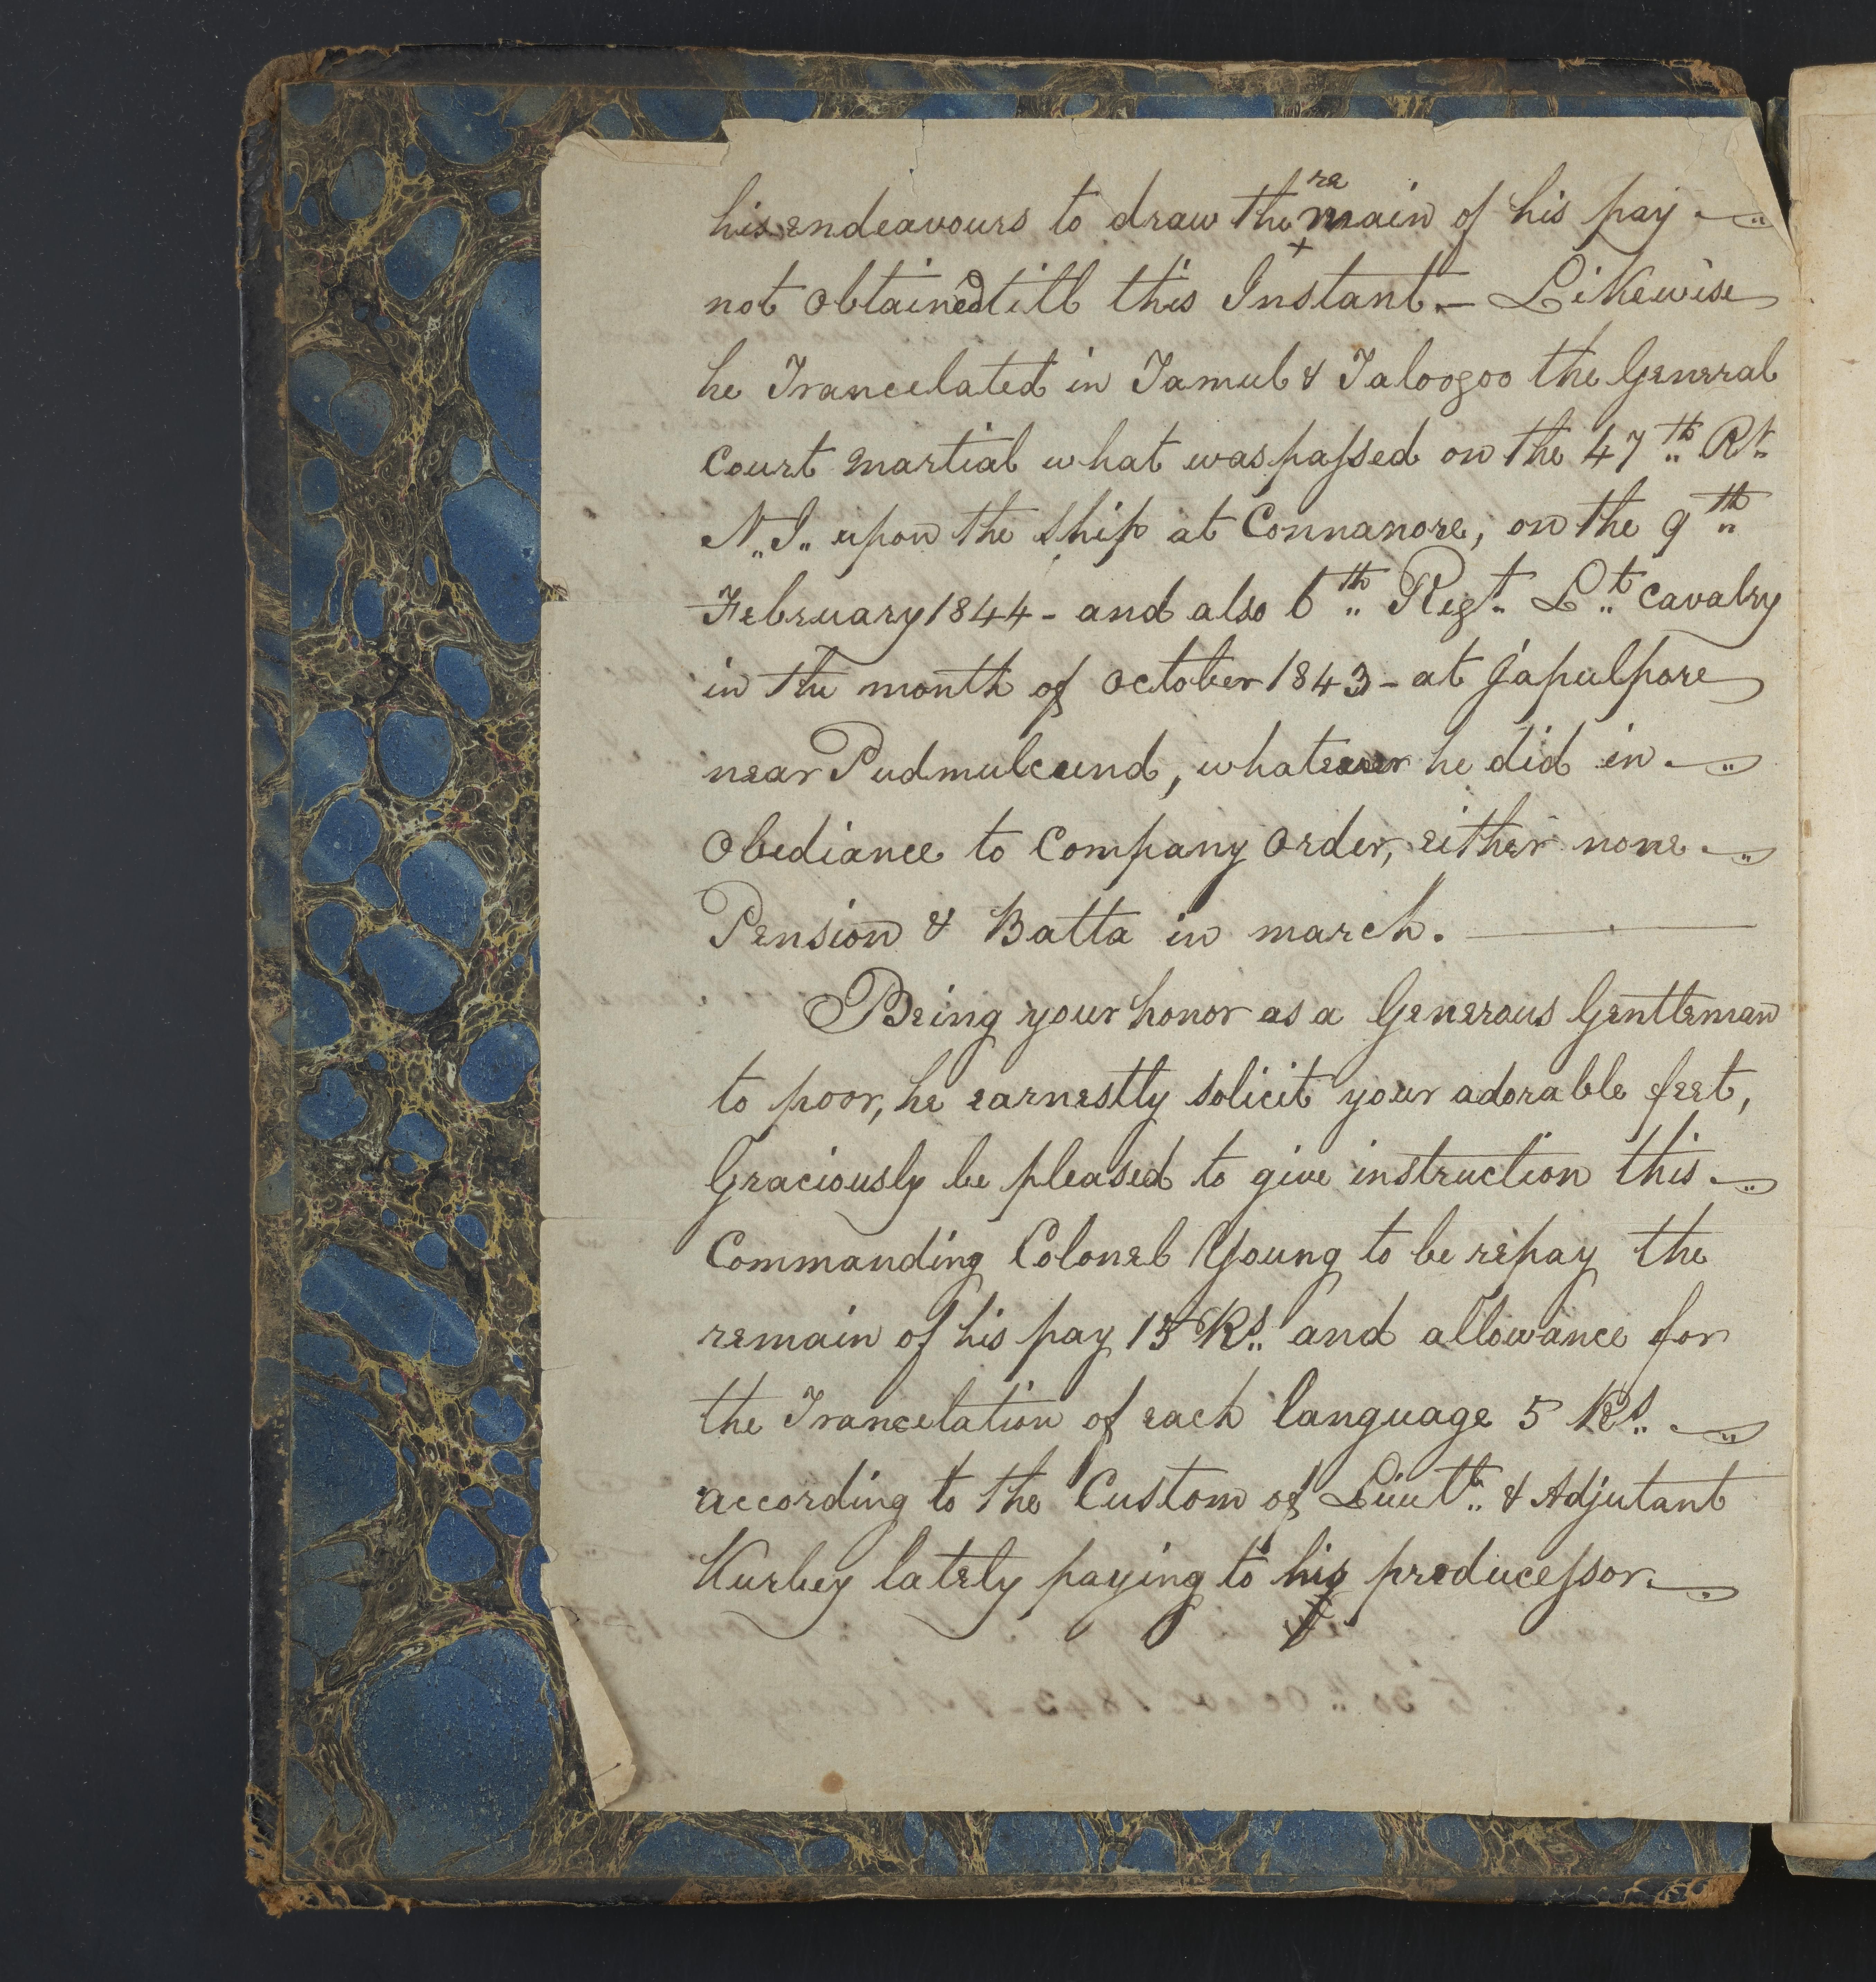 his endeavours to draw the remain of his pay
not obtained till this Instant. - Likewise
he Trancelated in Tamul & Taloogoo the General
Court Martial what was passed on the 47th Rt
N.I. upon the ship at Connanore, on the 9th
February 1844 - and also 6th Regt Lt Cavalry
in the month of October 1843 - at Japulpore
near Pudmulcund, whatever he did in
Obediance to Company order, either none
Pension & Batta in march.
Being your honor as a Generous Gentleman
to poor, he earnestly solicit your adorable feet,
Graciously be pleased to give instruction this
Commanding Colonel Young to be repay the
remain of his pay 15 Rs. and allowance for
the Trancelation of each language 5 Rs.
according to the Custom of Lieut. & Adjutant
Kurbey lately paying to his producessor.